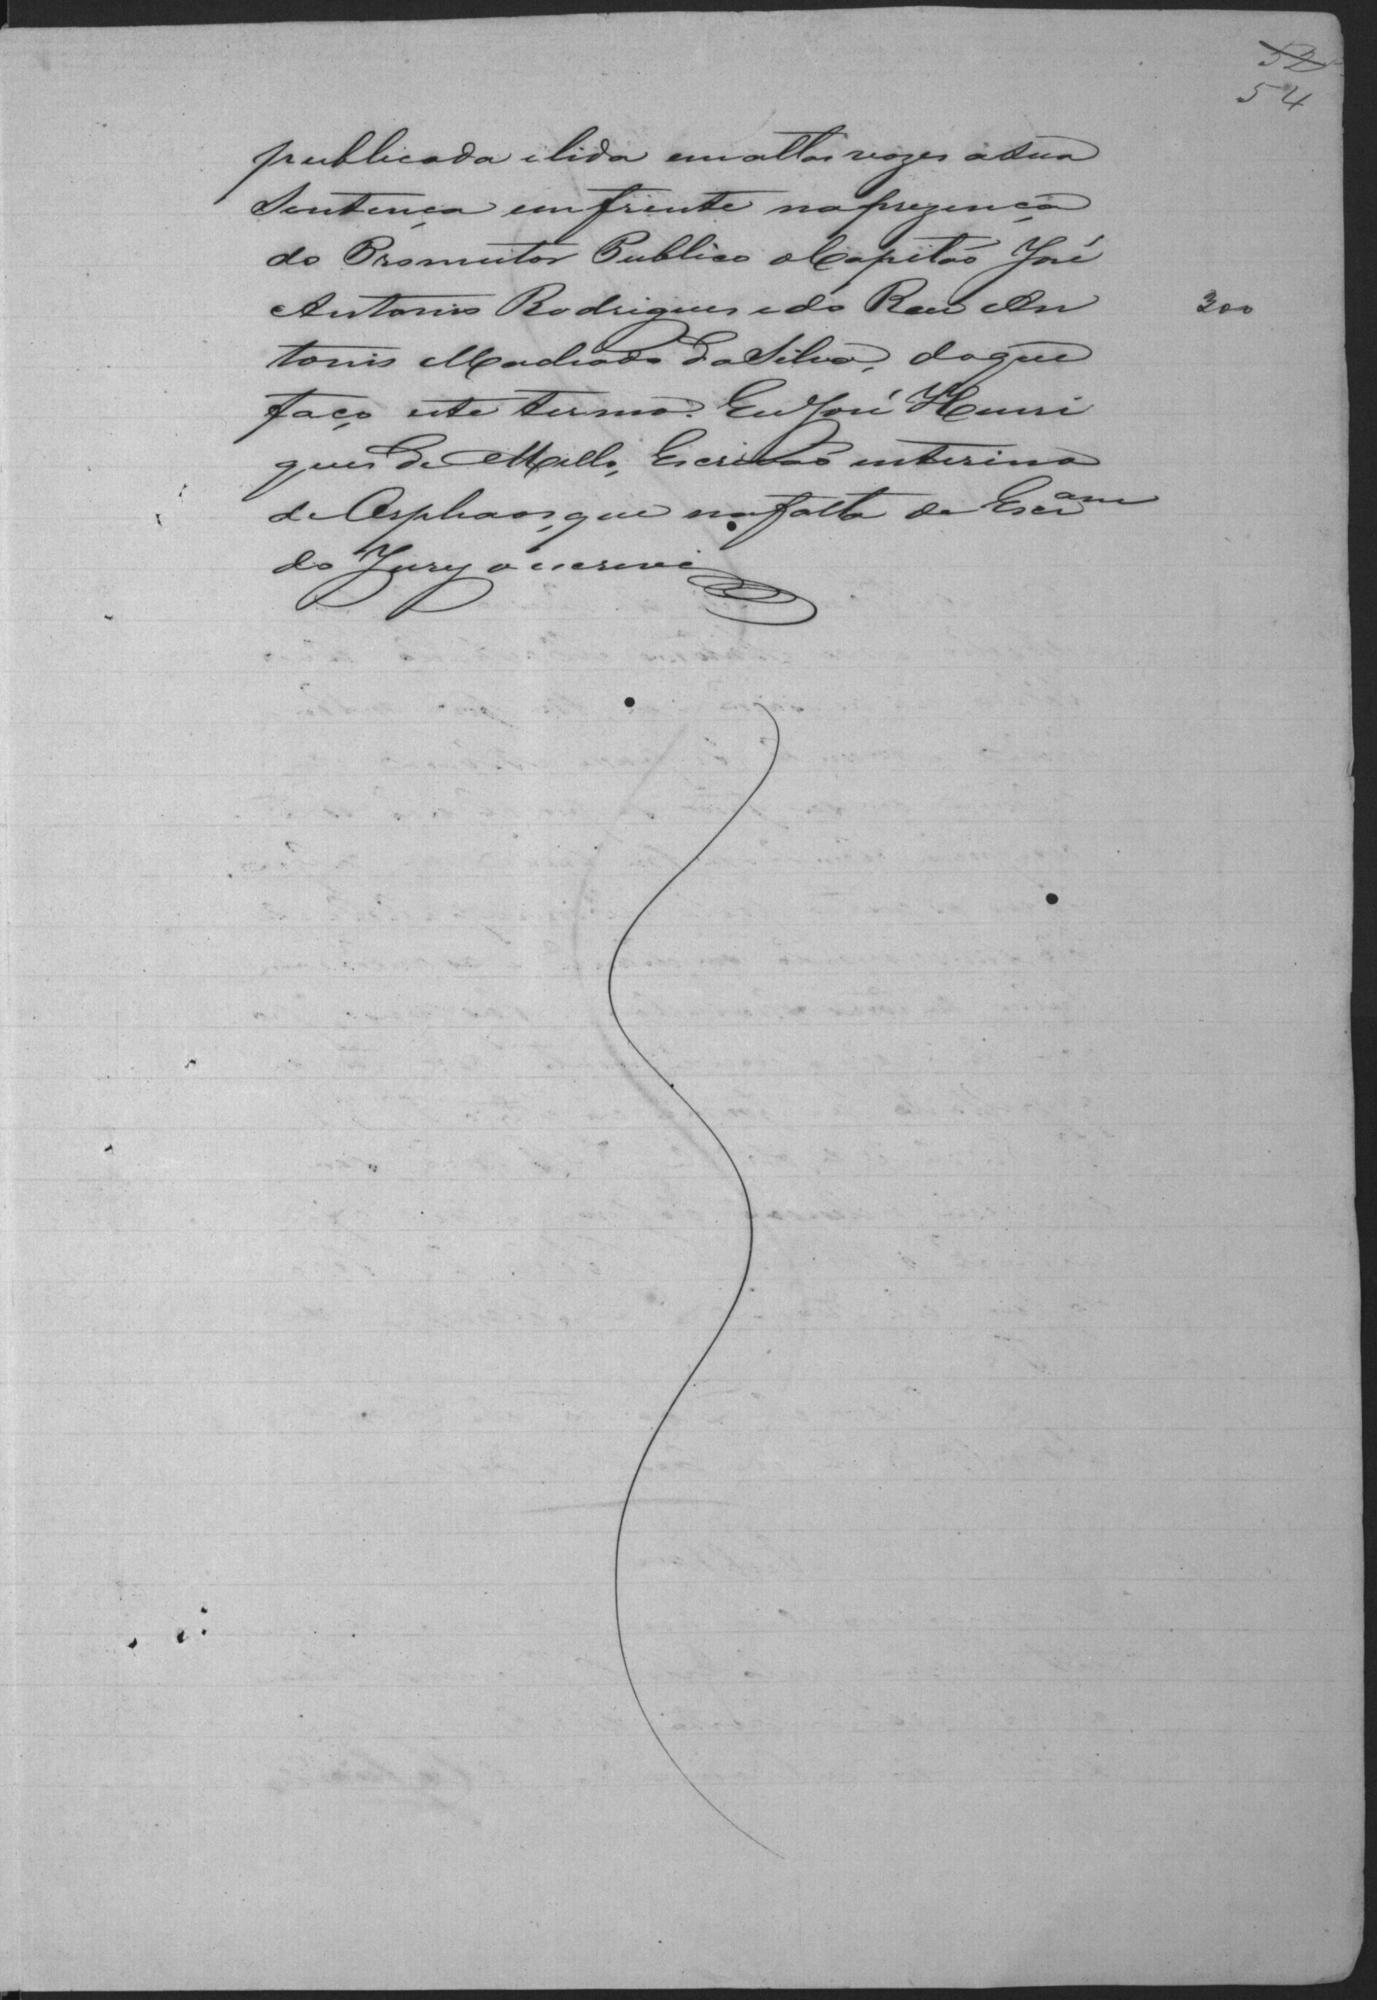 52
54
publicada e lida em altas vozes a sua
Sentença em frente na prezença
do Promutor Publico o Capitaõ José
Antonio Rodrigues e do Reu An
300
tonio Machado da Silva, do que
faço este termo. Eu José Henri
ques de Mello, Escrivaõ interino
de Orphaos, que na falta de Escram
do Jury o escrevi